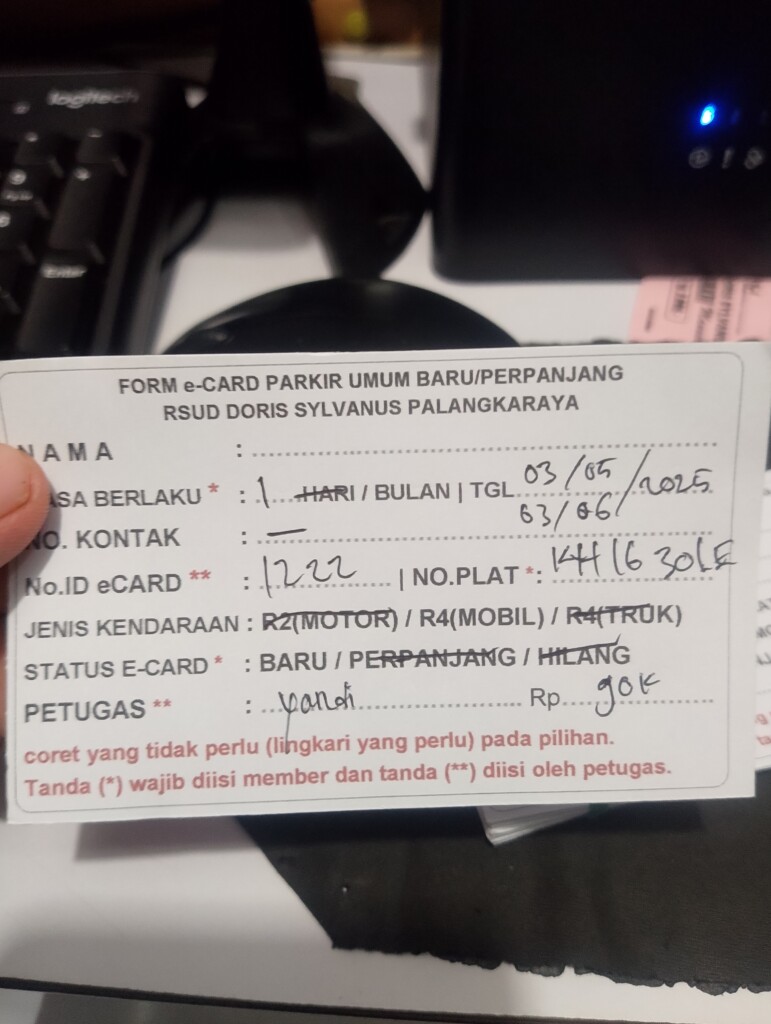 logitech
Enter
FORM e-CARD PARKIR UMUM BARU/PERPANJANG
RSUD DORIS SYLVANUS PALANGKARAYA
NAMA :
MASA BERLAKU * : 1 HARI / BULAN | TGL 03/05 /2025
03/06
NO. KONTAK : —
No.ID eCARD ** : 1222 | NO.PLAT *: KH 16
JENIS KENDARAAN : R2(MOTOR) / R4(MOBIL) / R4(TRUK)
STATUS E-CARD * : BARU / PERPANJANG / HILANG
PETUGAS ** : yandi Rp. 90K
coret yang tidak perlu (lingkari yang perlu) pada pilihan.
Tanda (*) wajib diisi member dan tanda (**) diisi oleh petugas.